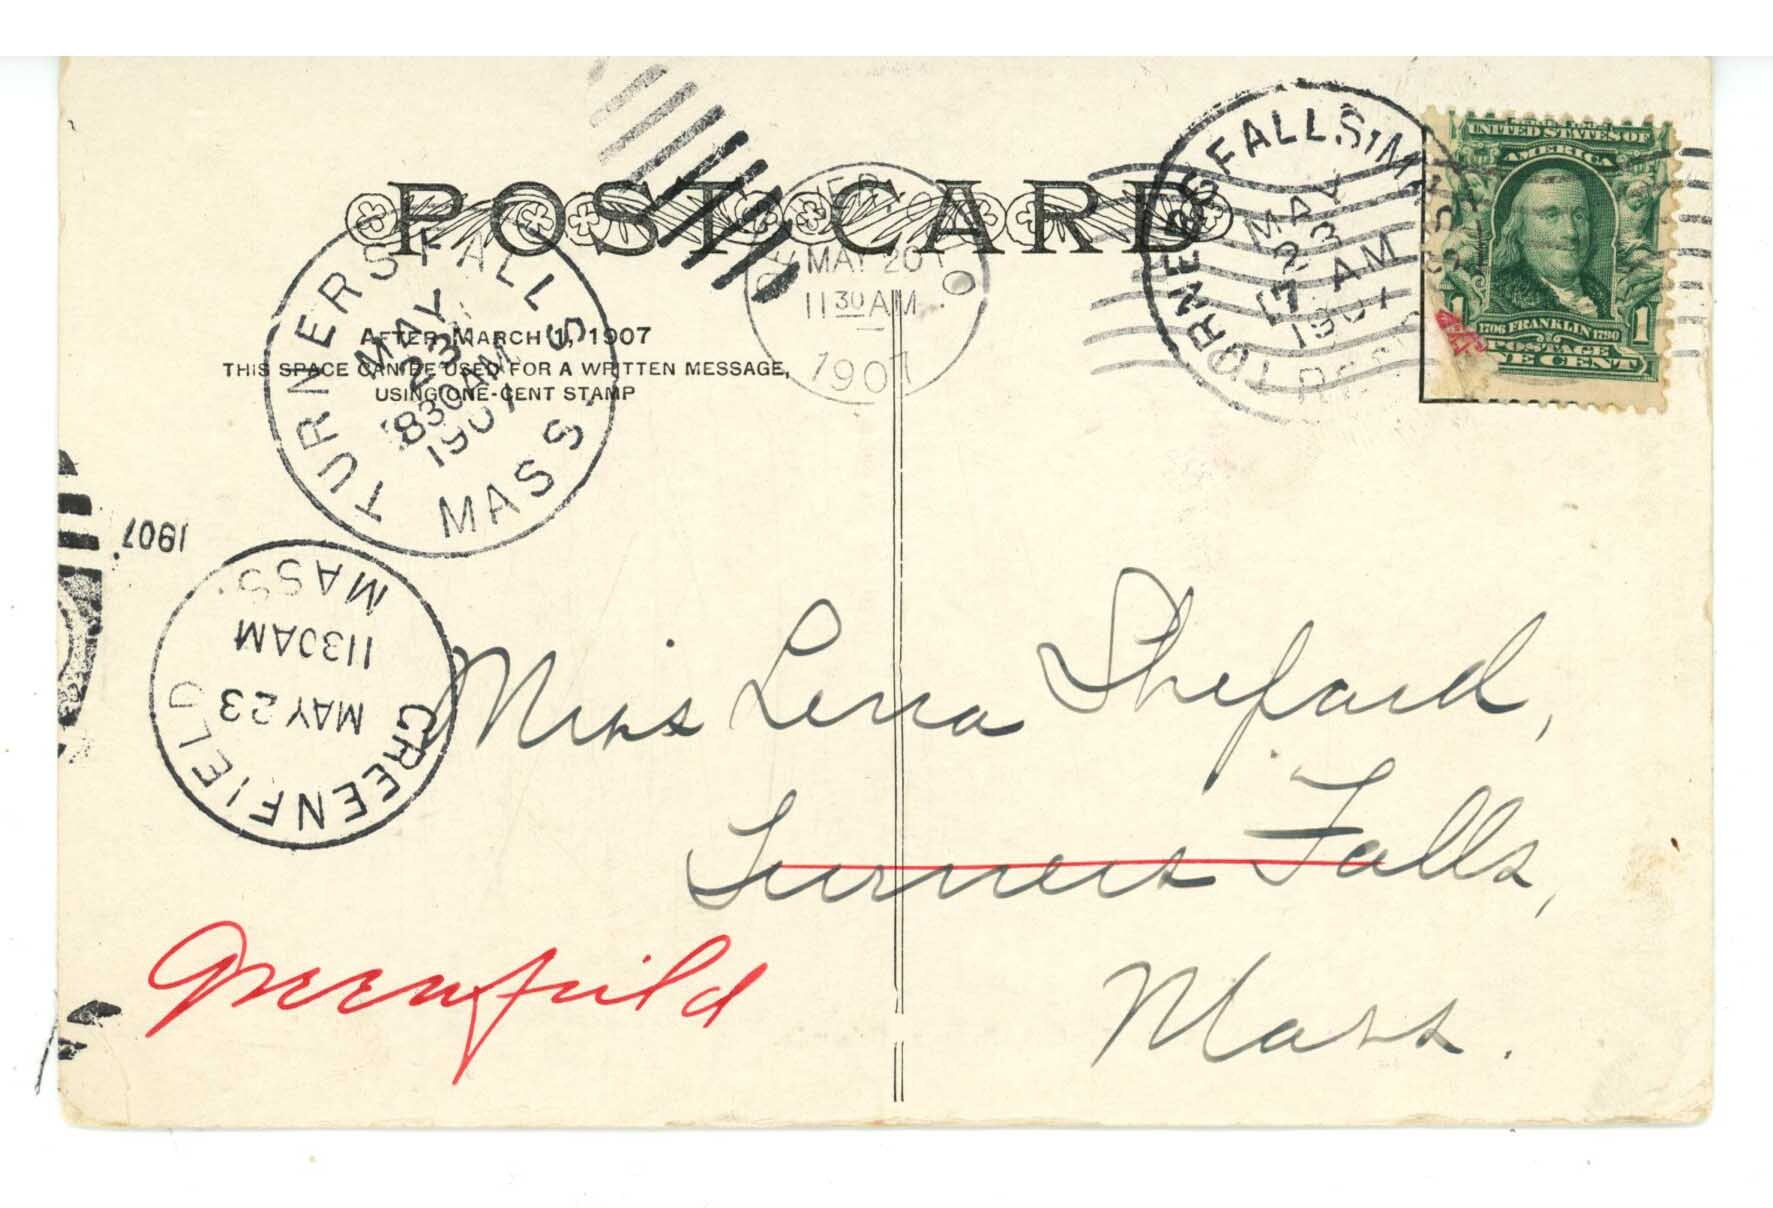 POST CARD
UNITED STATES OF
AMERICA
1706 FRANKLIN 1790
1 1
POSTAGE
ONE CENT
TURNERS FALLS, M
MAY
23
7 AM
1907
MAY 20
11 30 AM
1907
AFTER MARCH 1, 1907
THIS SPACE CAN BE USED FOR A WRITTEN MESSAGE,
USING ONE-CENT STAMP
TURNERS FALLS
MAY
23
830AM
1907
MASS.
1907
GREENFIELD
MAY 23
1130AM
MASS.
Miss Lena Shepard,
Turners Falls,
Mass.
Greenfield